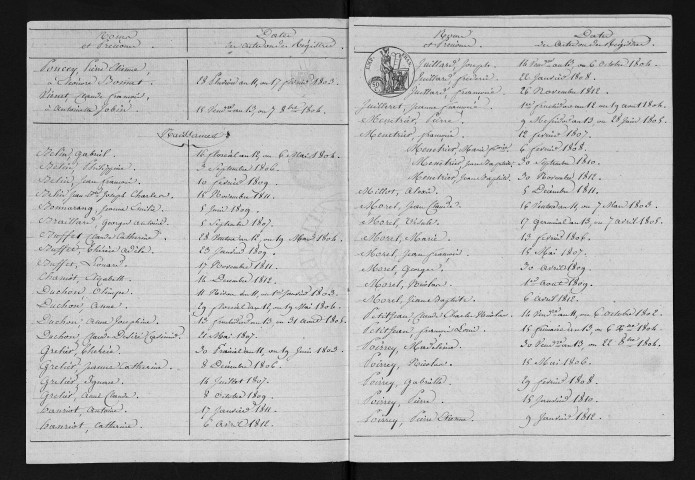 Noms et Prénoms
Date des actes ou des Registres
Poncey, Pierre Etienne
à 28 Pluviose an 11, ou 17 février 1803.
Pienet, Claude françois,
à Antoinette 15 Vend.re an 13, ou 7 8bre 1804.
Belin, Gabriel. 16 floréal an 12, ou 6 Mai 1804
Belin, Philippine. 3 Septembre 1806.
Belin, jean françois. 10 février 1809.
Belin, jean Joseph Charles. 15 Novembre 1811.
5 juin 1809.
Georges Antoine. 5 Septembre 1807.
Buffet, Claude Catherine. 28 an 12, ou 19 1804
Buffet, Adèle. 23 janvier 1809.
Buffet, Léonard. 17 Novembre 1811.
Chaniot, Elizabeth 14 Décembre 1812.
Duchon, 11 Nivose an 11, ou 1er janvier 1803.
Duchon, Anne. 29 floréal an 12, ou 19 Mai 1804
Duchon, Anne Joséphine. 13 fructidor an 13, ou 31 Août 1805.
Duchon, Désiré 21 Mai 1807.
Gretier, 30 Prairial an 11, ou 19 juin 1803.
Gretier, jeanne Catherine. 8 Décembre 1806.
Gretier, Ignace 14 juillet 1807.
Gretier, Anne Claude. 8 octobre 1809.
hanriot, Antoine. 17 janvier 1811.
hanriot, Catherine. 6 avril 1812.
Noms et Prénoms
Date des actes ou des Registres
Juillard, Joseph. 14 Vend.re an 13, ou 6 Octobre 1804.
Juillard, 22 janvier 1808.
Juillard, françoise 26 Novembre 1812.
Juilleret, jeanne françoise. 1er fructidor an 12, ou 19 août 1804
Menetrier, Pierre. 9 Messidor an 13, ou 28 juin 1805.
Menetrier, françois. 12 février 1807.
Menetrier, Marie 6 février 1808.
Menetrier, jeanne Baptiste. 30 Septembre 1810.
Menetrier, jean Baptiste. 30 Novembre 1812.
Millot, Alexis. 5 Décembre 1811.
Morel, jean Claude. 16 Ventose an 11, ou 7 Mars 1803.
Morel, 17 Germinal an 13, ou 7 avril 1805.
Morel, Marie. 13 février 1806.
Morel, jean françois. 15 Mai 1807.
Morel, Georges. 30 avril 1809.
Morel, Nicolas. 1er Août 1809.
Morel, jeanne Baptiste. 6 avril 1812.
Petitjean, Claude Charles Nicolas. 14 Vend.re an 11, ou 6 octobre 1802.
Petitjean, françois Louis. 15 frimaire an 13, ou 6 Xbre 1804.
Poirrey, Madeleine. 30 Vend.re an 13, ou 22 8bre 1804.
Poirrey, Nicolas. 15 Mai 1806.
Poirrey, Gabrielle. 29 février 1808.
Poirrey, Pierre. 15 janvier 1810.
Poirrey, Pierre Etienne. 9 janvier 1812.